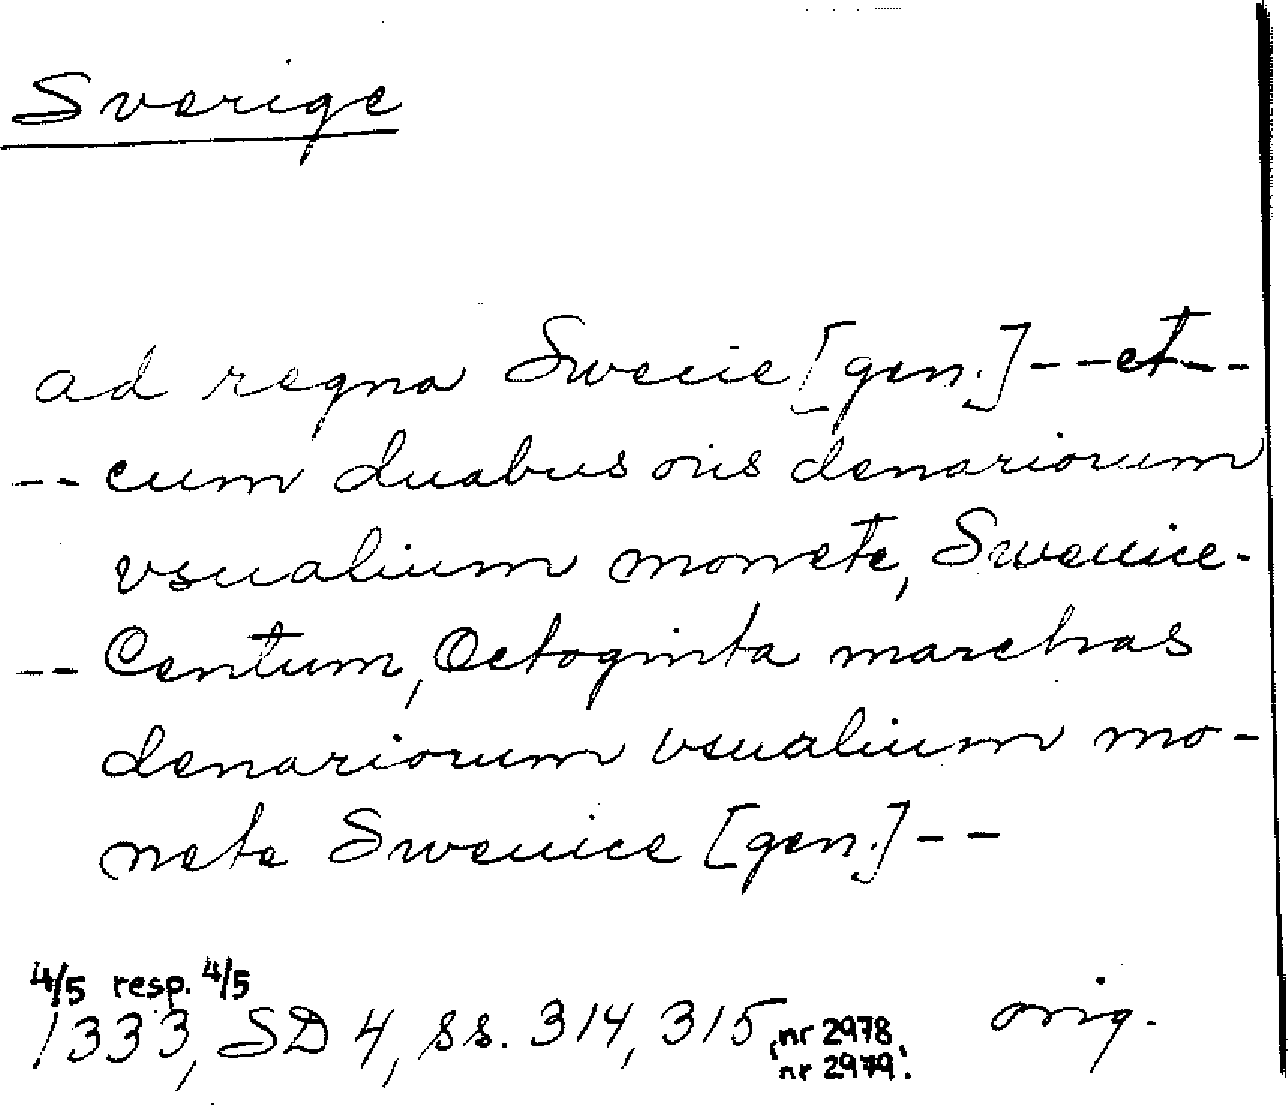 Sverige
ad regna Swecie [gen.] -- et --
-- cum duabus oris denariorum
vsualium monete, Sweuice -
-- Centum, Octoginta marchas
denariorum vsualium mo-
nete Sweuice [gen.] --
4/5 resp. 4/5
1333, SD 4, ss. 314, 315, nr 2978, orig.
nr 2979.